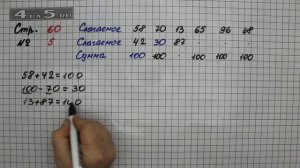 4 ДЛЯ 5
Стр. 60 Слагаемое 58 70 13 65 96 68
№ 5 Слагаемое 42 30 87
Сумма 100 100 100 100 100
58+42=100
100-70=30
13+87=100